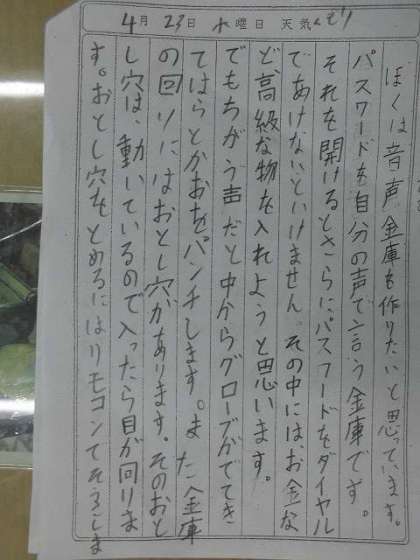 4月23日 水曜日 天気くもり
ぼくは音声金庫も作りたいと思っています。
パスワードを自分の声で言う金庫です。
それを開けるとさらにパスワードをダイヤル
であけないといけません。その中には、お金な
ど、高級な物を入れようと思います。
でもちがう声だと中からグローブがでてき
てはらとかおをパンチします。また金庫
の回りにはおとし穴があります。そのおと
し穴は、動いているので入ったら目が回りま
す。おとし穴をとめるにはリモコンでそうしま